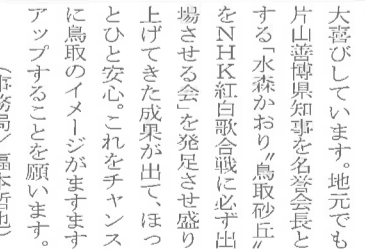 大喜びしています。地元でも
片山善博県知事を名誉会長と
する「水森かおり〝鳥取砂丘〟
をNHK紅白歌合戦に必ず出
場させる会」を発足させ盛り
上げてきた成果が出て、ほっ
とひと安心。これをチャンス
に鳥取のイメージがますます
アップすることを願います。
(事務局/福本哲也)